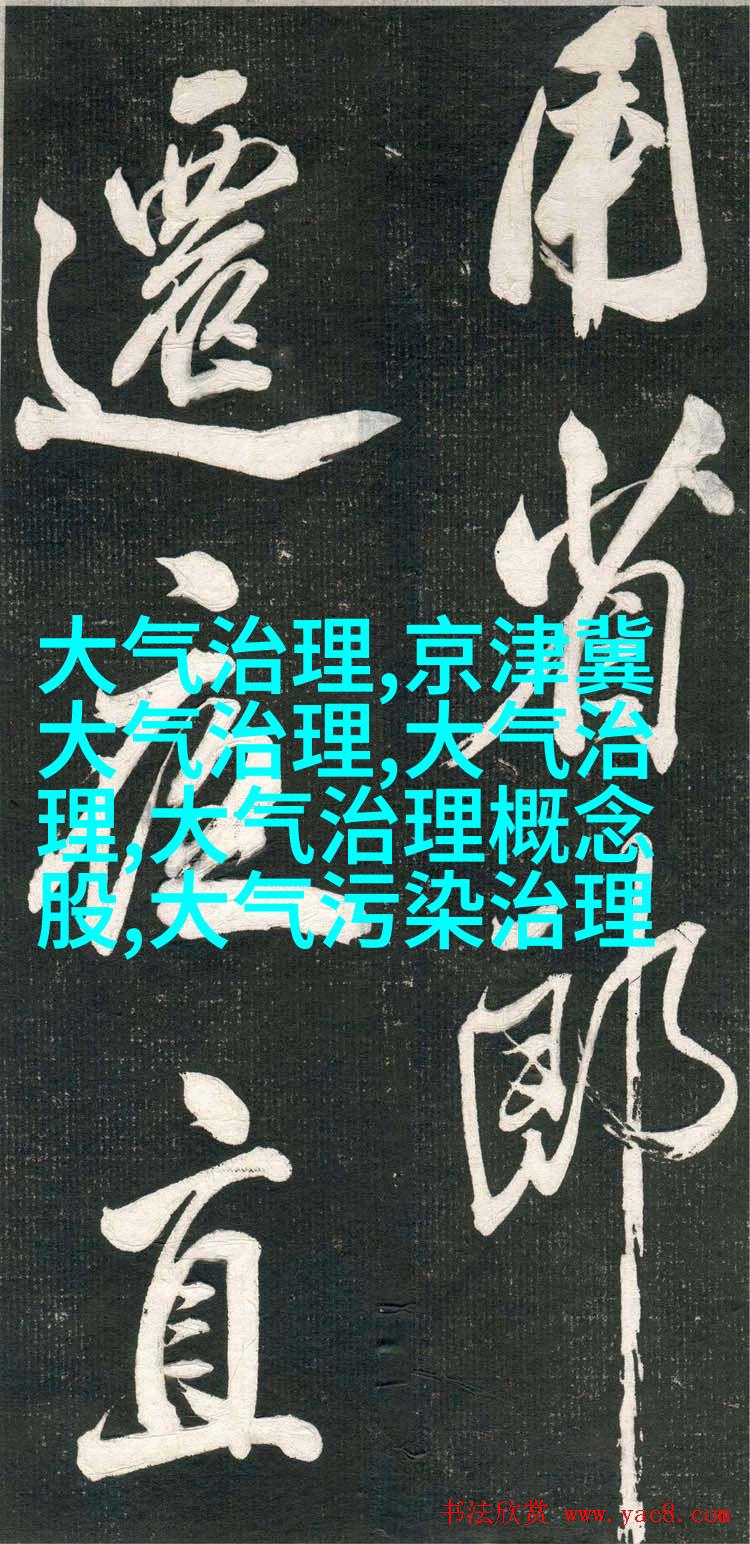 用省郎
還應直
大气治理,京津冀
大气治理,大气治
理,大气治理概念
股,大气污染治理
书法欣赏 www.yac8.com